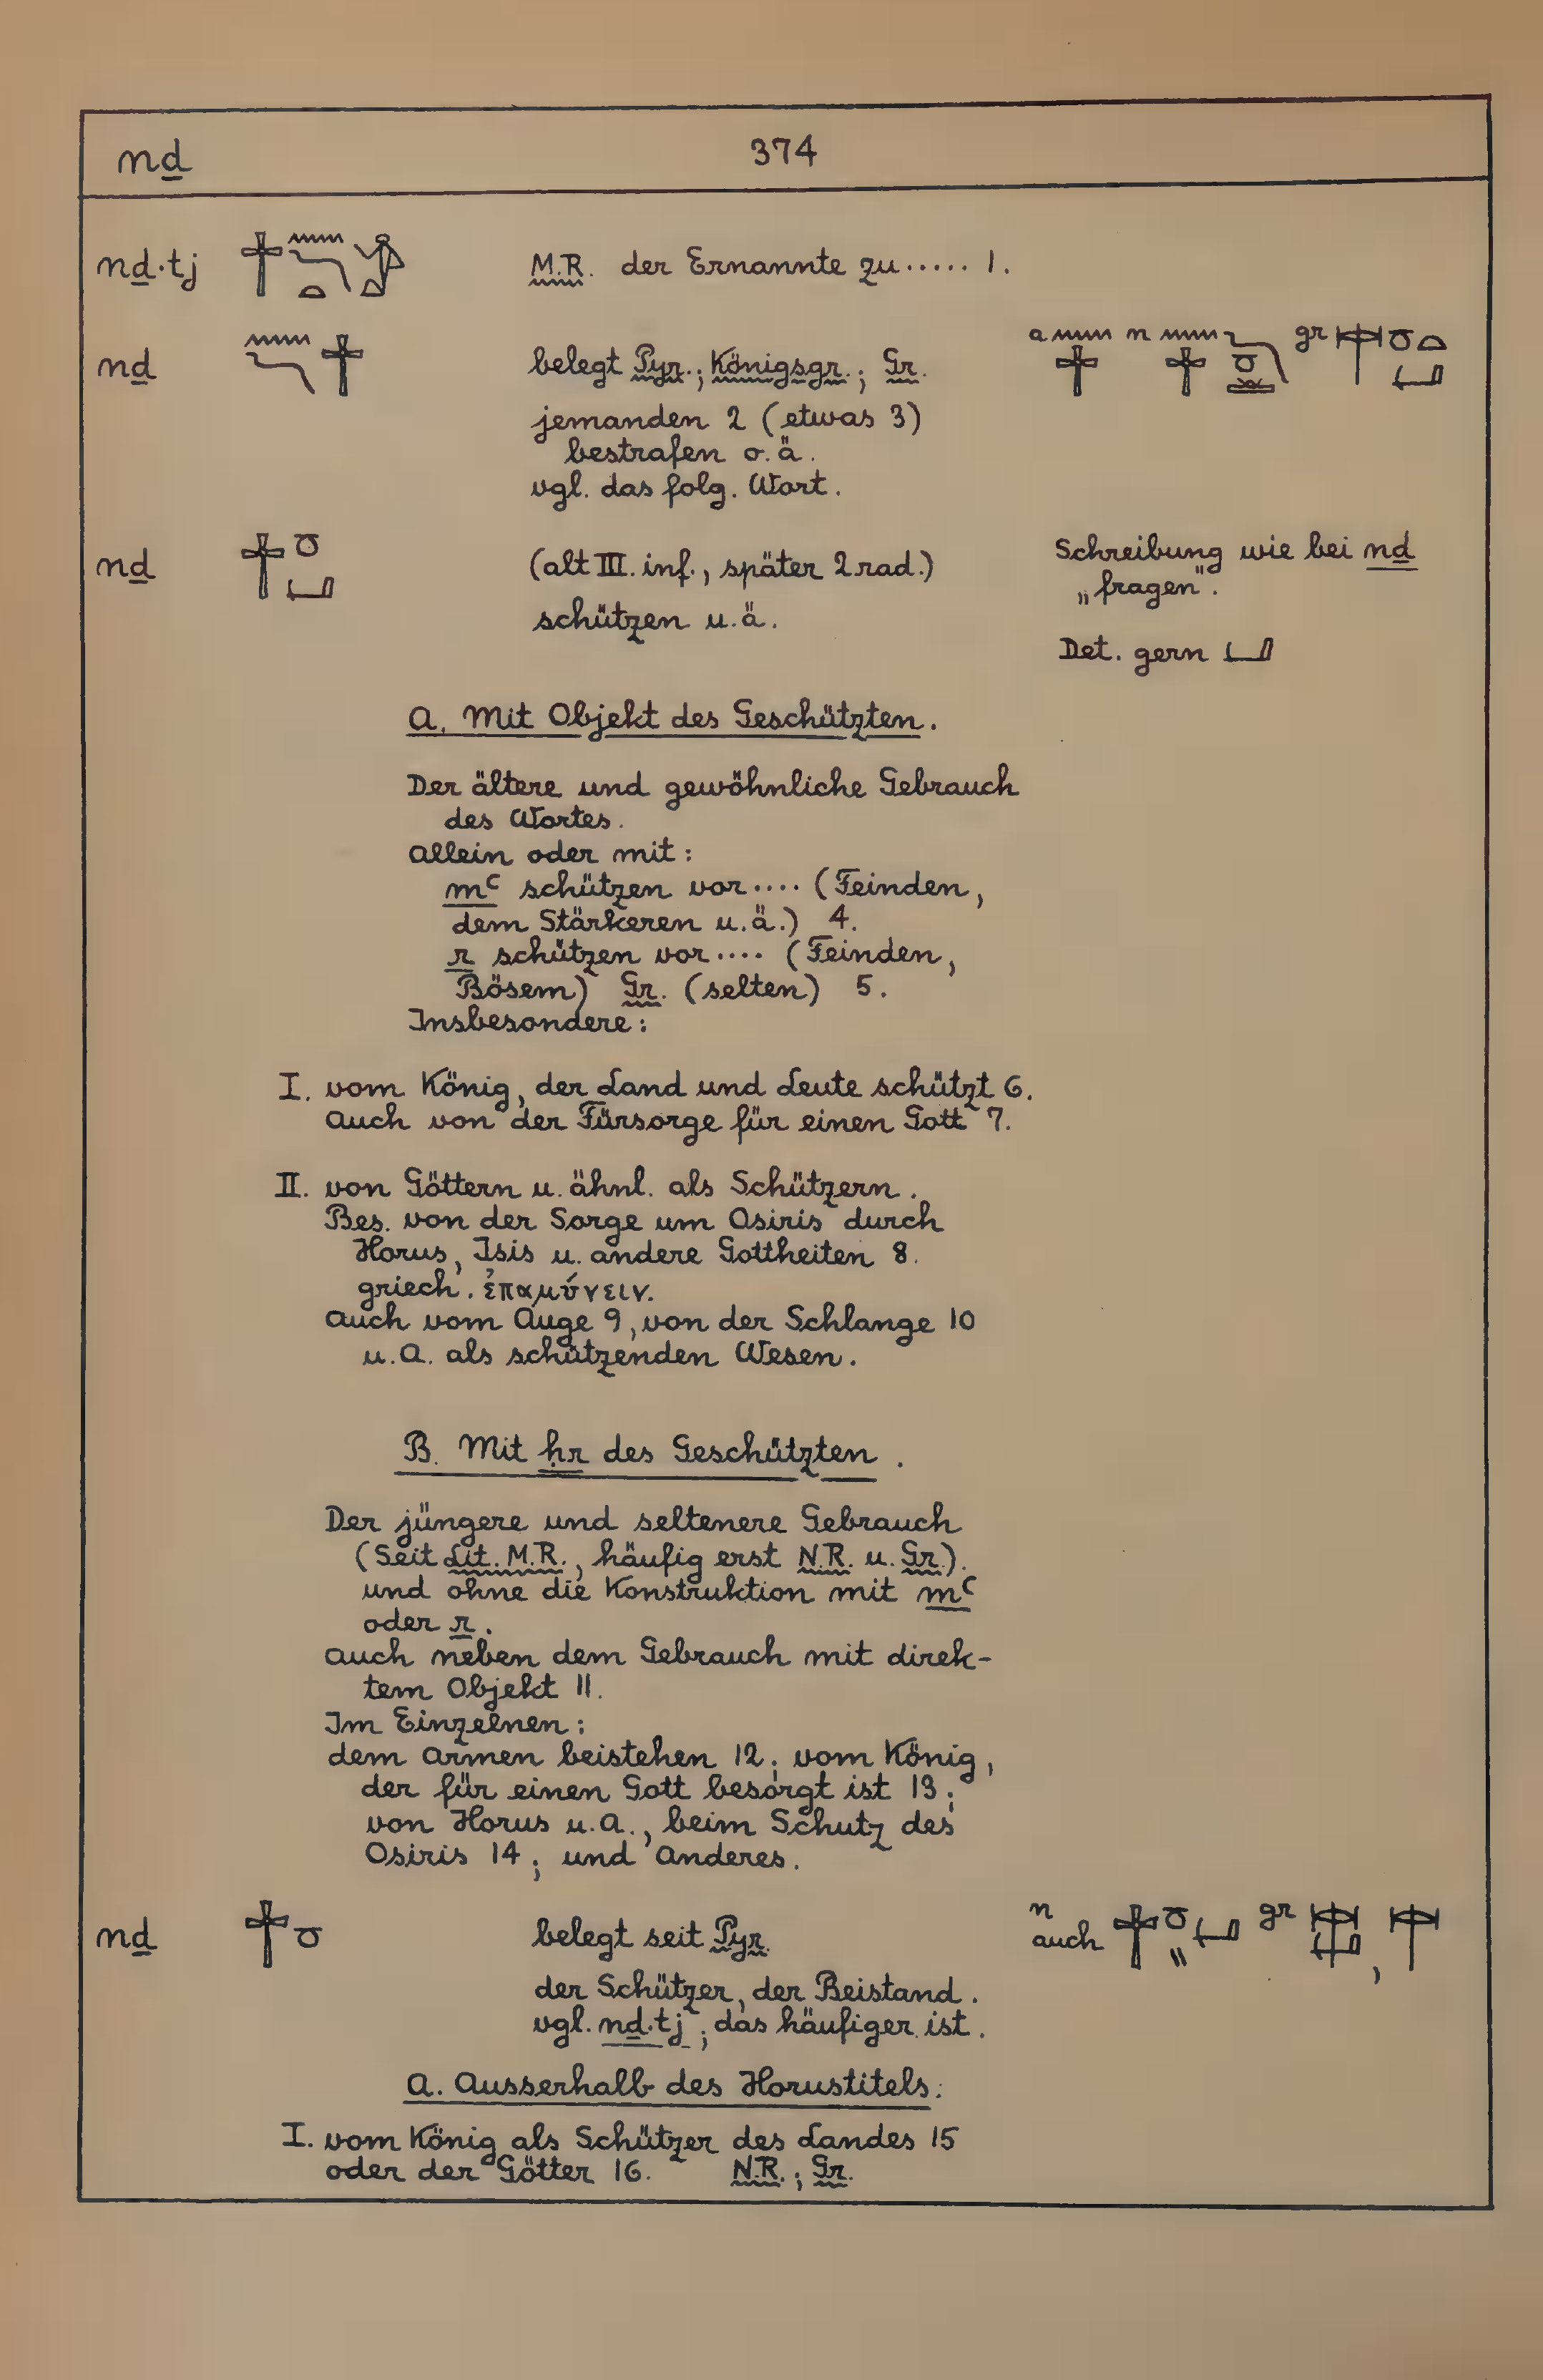 nḏ 374
nḏ·tj M.R. der Ernannte zu ..... 1.
nḏ belegt Pyr.; Königsgr.; Gr. a n gr
jemanden 2 (etwas 3)
bestrafen o.ä.
vgl. das folg. Wort.
nḏ (alt III. inf., später 2 rad.)
schützen u.ä.
Schreibung wie bei nḏ
„fragen".
Det. gern
A. Mit Objekt des Geschützten.
Der ältere und gewöhnliche Gebrauch
des Wortes.
Allein oder mit:
mꜥ schützen vor .... (Feinden,
dem Stärkeren u.ä.) 4.
r schützen vor .... (Feinden,
Bösem) Gr. (selten) 5.
Insbesondere:
I. vom König, der Land und Leute schützt 6.
Auch von der Fürsorge für einen Gott 7.
II. von Göttern u. ähnl. als Schützern.
Bes. von der Sorge um Osiris durch
Horus, Isis u. andere Gottheiten 8.
griech. ἐπαμύνειν.
Auch vom Auge 9, von der Schlange 10
u.A. als schützenden Wesen.
B. Mit ḥr des Geschützten.
Der jüngere und seltenere Gebrauch
(Seit Lit. M.R., häufig erst N.R. u. Gr.).
und ohne die Konstruktion mit mꜥ
oder r.
Auch neben dem Gebrauch mit direk-
tem Objekt 11.
Im Einzelnen:
dem Armen beistehen 12; vom König,
der für einen Gott besorgt ist 13;
von Horus u.A., beim Schutz des
Osiris 14; und Anderes.
nḏ belegt seit Pyr. n auch gr ,
der Schützer, der Beistand.
vgl. nḏ·tj; das häufiger ist.
A. Ausserhalb des Horustitels:
I. vom König als Schützer des Landes 15
oder der Götter 16. N.R.; Gr.